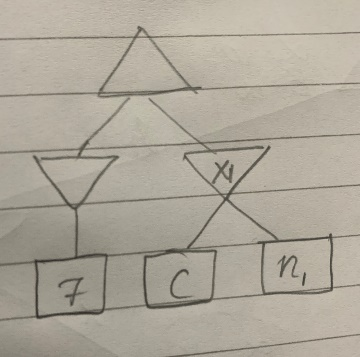 X1
7 C n1